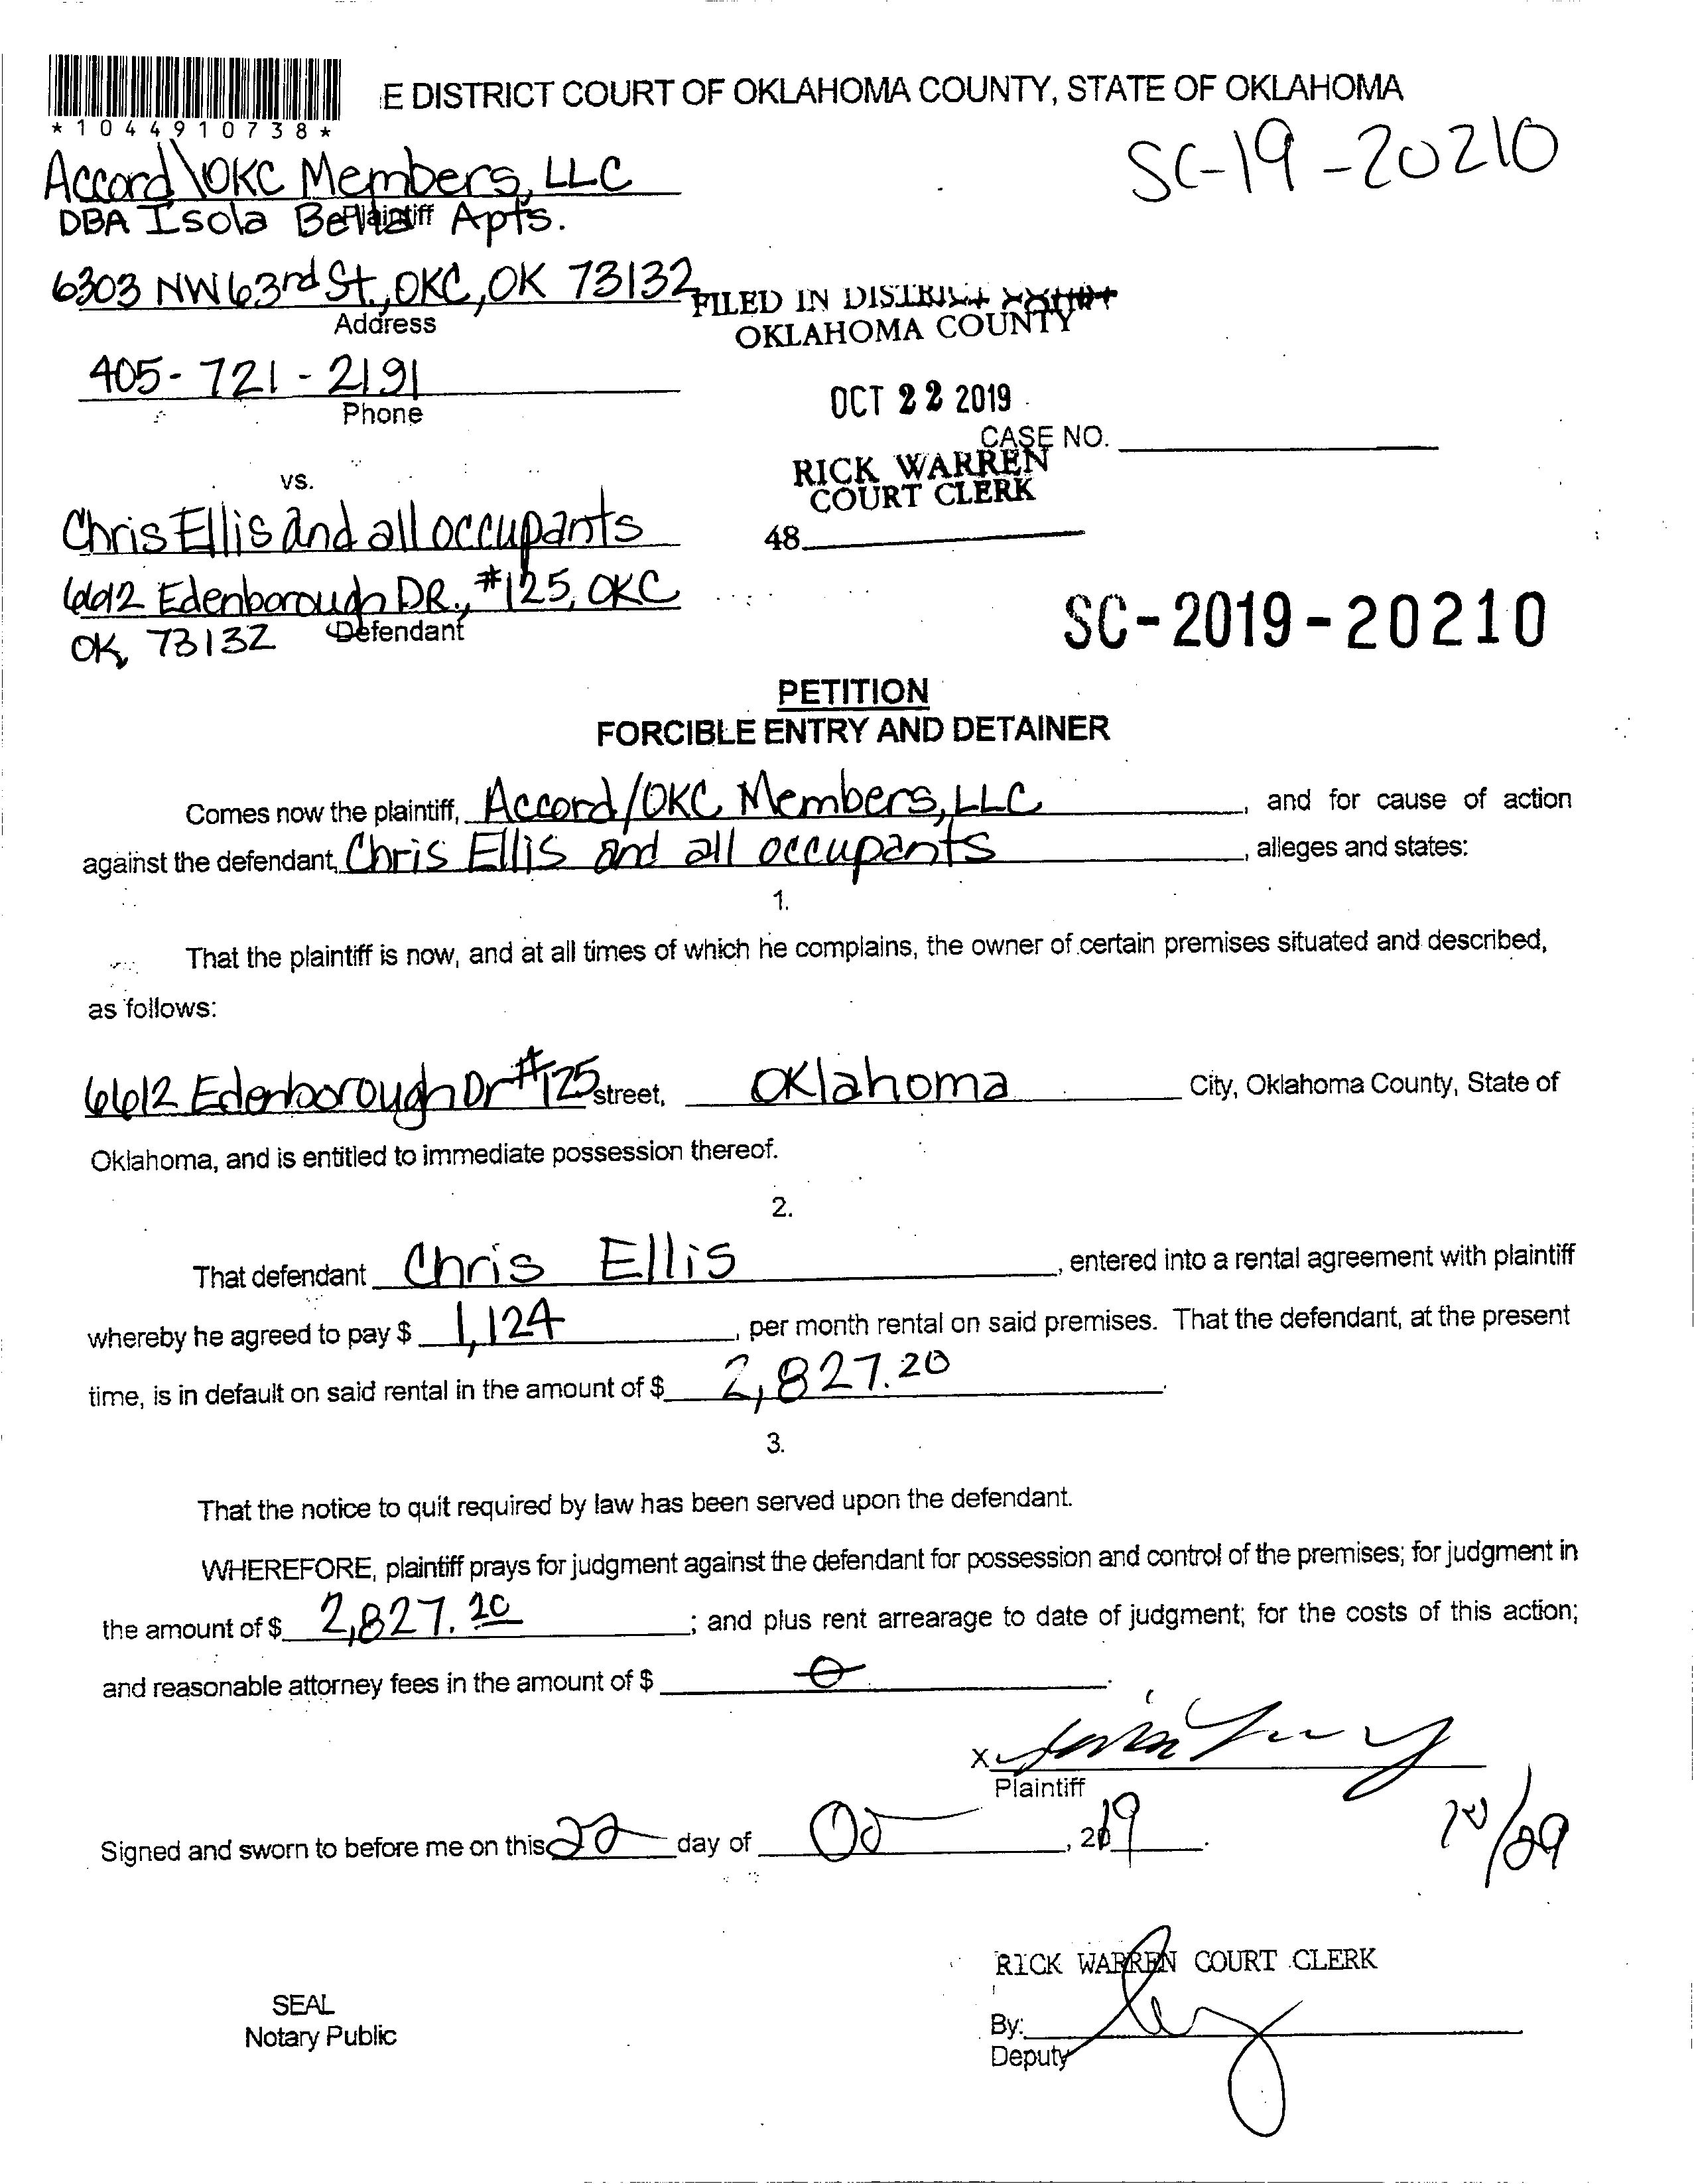 E DISTRICT COURT OF OKLAHOMA COUNTY, STATE OF OKLAHOMA
*1044910738*
SC-19-20210
Accord\OKC Members, LLC
Plaintiff
DBA Isola Bella Apts.
6303 NW 63rd St., OKC, OK 73132
Address
FILED IN DISTRICT COURT
OKLAHOMA COUNTY
405-721-2191
Phone
OCT 22 2019
CASE NO.
RICK WARREN
COURT CLERK
vs.
48
Chris Ellis and all occupants
6612 Edenborough DR., #125, OKC
OK, 73132 Defendant
SC-2019-20210
PETITION
FORCIBLE ENTRY AND DETAINER
Comes now the plaintiff, Accord/OKC Members, LLC, and for cause of action
against the defendant, Chris Ellis and all occupants, alleges and states:
1.
That the plaintiff is now, and at all times of which he complains, the owner of certain premises situated and described,
as follows:
6612 Edenborough Dr #125 street, Oklahoma City, Oklahoma County, State of
Oklahoma, and is entitled to immediate possession thereof.
2.
That defendant Chris Ellis, entered into a rental agreement with plaintiff
whereby he agreed to pay $ 1,124, per month rental on said premises. That the defendant, at the present
time, is in default on said rental in the amount of $ 2,827.20.
3.
That the notice to quit required by law has been served upon the defendant.
WHEREFORE, plaintiff prays for judgment against the defendant for possession and control of the premises; for judgment in
the amount of $ 2,827.20; and plus rent arrearage to date of judgment; for the costs of this action;
and reasonable attorney fees in the amount of $ 0.
X
Plaintiff
Signed and sworn to before me on this 22 day of Oct, 2019.
RICK WARREN COURT CLERK
SEAL
Notary Public
By:
Deputy